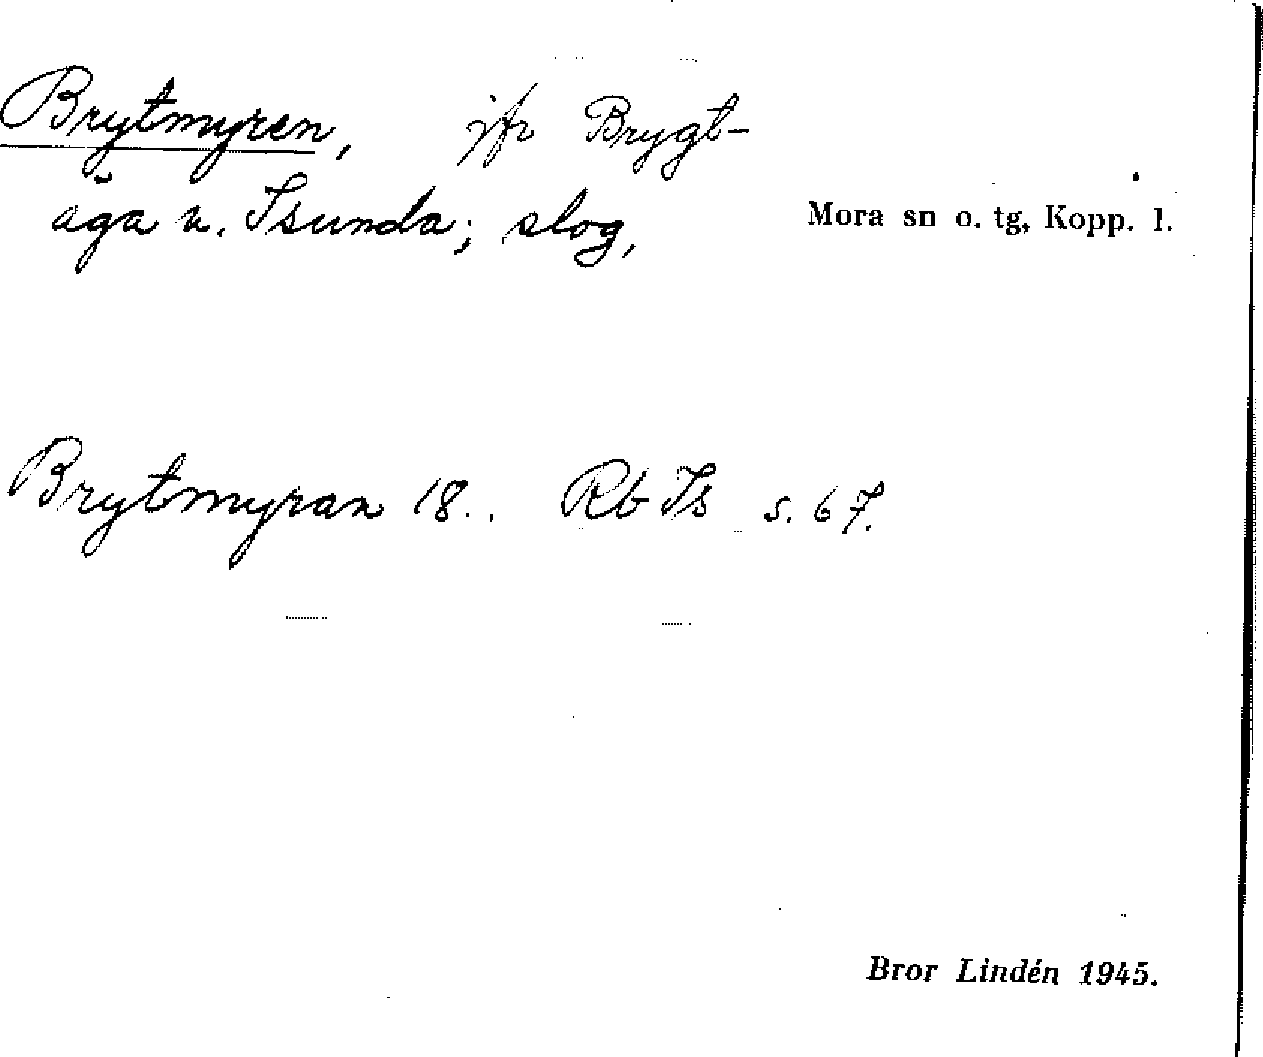 Brytmyren, jfr Brygt-
äga v. Isunda; slog,
Mora sn o. tg, Kopp. l.
Brytmyran 18.. Rb Is s. 67.
Bror Lindén 1945.